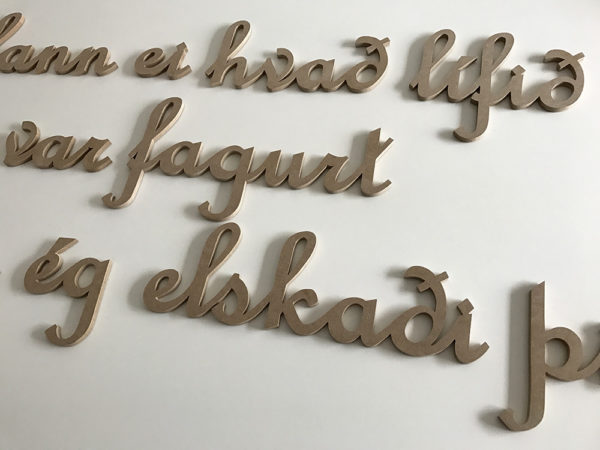 ei hvað lífið
var fagurt
ég elskaði